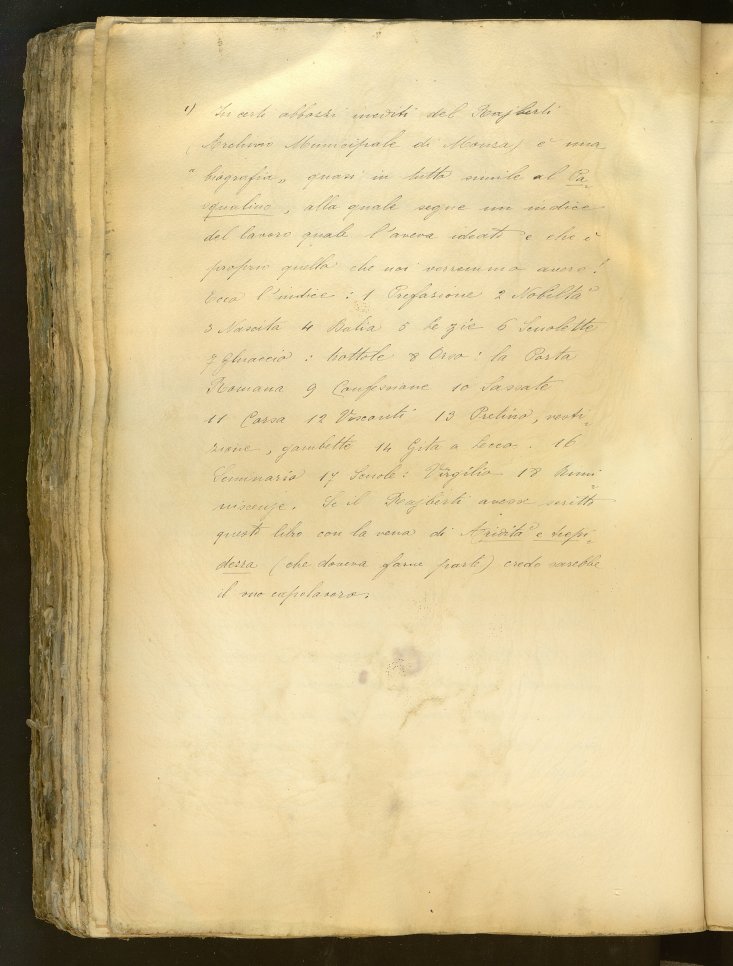 1) In certi abbozzi inediti del Rajberti
(Archivio Municipale di Monza) è una
"biografia„ quasi in tutto simile al Pa-
squalino, alla quale segue un indice
del lavoro quale l'aveva ideato e che è
proprio quello che noi vorremmo avere!
Ecco l'indice: 1 Prefazione 2 Nobiltà
3 Nascita 4 Balia 5 Le zie 6 Scuolette
7 Ghiaccio: trottole 8 Orso: la Porta
Romana 9 Confessione 10 Sassate
11 Corsa 12 Visconti 13 Pretino, vesti-
zione, gambette 14 Gita a Lecco. 16
Seminario 17 Scuole: Virgilio 18 Remi-
niscenze. Se il Rajberti avesse scritto
questo libro con la vena di e trepi-
dezza (che doveva farne parte) credo sarebbe
il suo capolavoro.